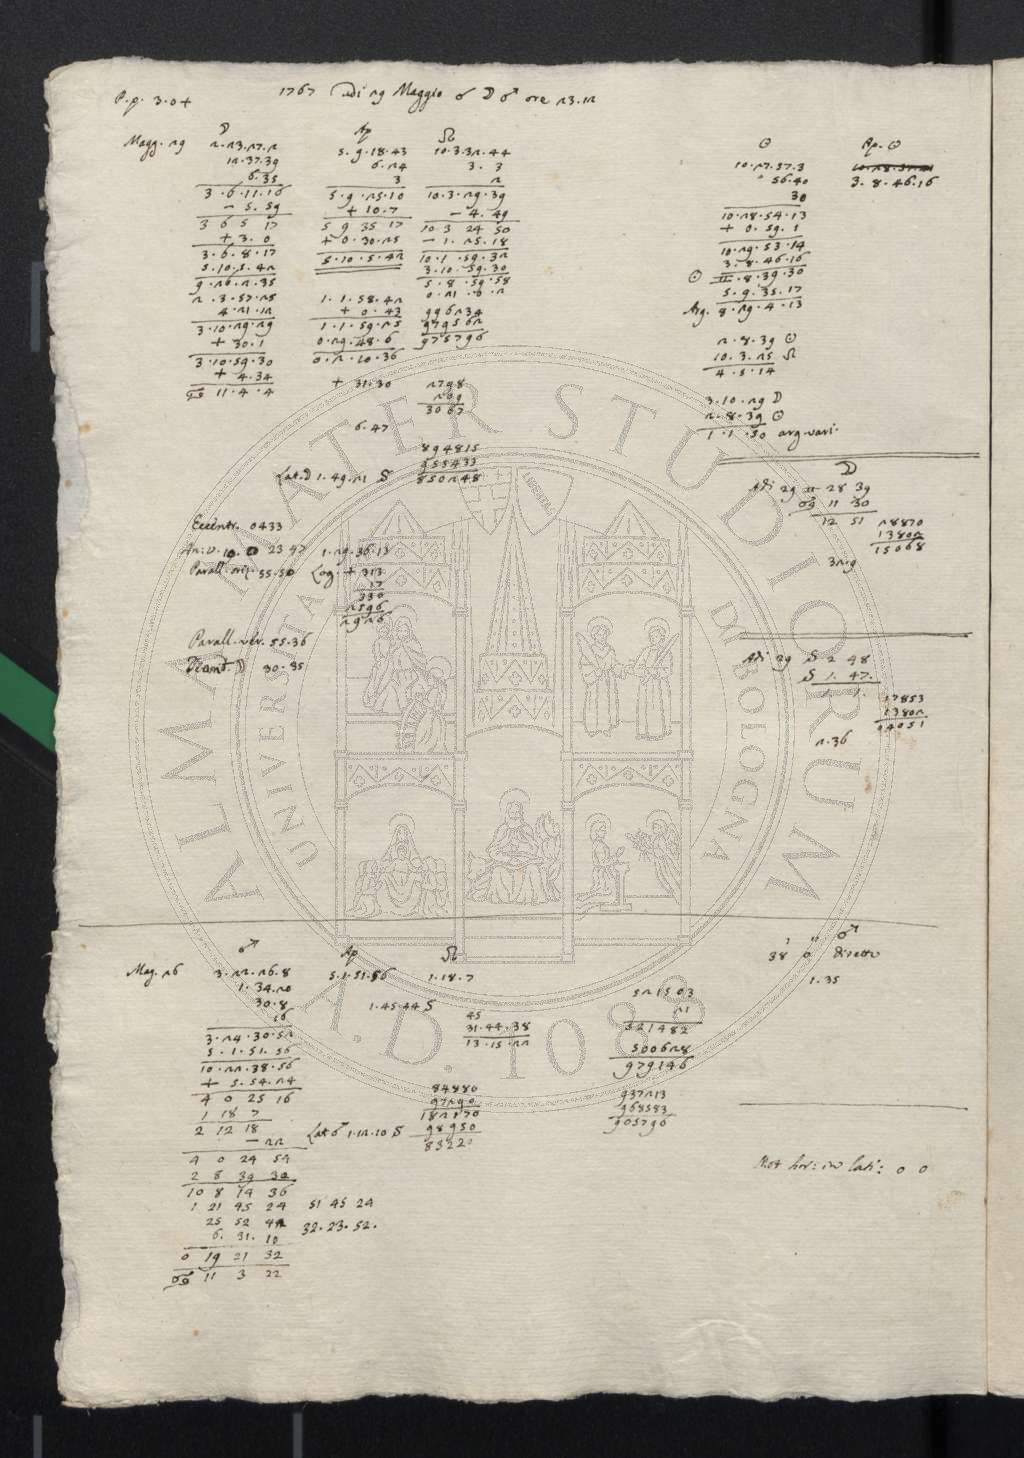 P.p. 3.0+
1767 Adi 29 Maggio ☌ ☽ ♂ ore 23.12
Magg. 29
☽
2.23.27.2
12.37.39
6.35
3.6.11.16
– 5.59
3 6 5 17
+ 3.0
3.6.8.17
5.10.5.42
9.26.2.35
2.3.57.25
4.21.12
3.10.29.29
+ 30.1
3.10.59.30
+ 4.34
♋ 11.4.4
Ap
5.9.18.43
6.24
3
5.9.25.10
+ 10.7
5 9 35 17
+ 0.30.25
5.10.5.42
1.1.58.42
+ 0.43
1.1.59.25
0.29.48.6
0.2.10.36
+ 31.30
6.47
☊
10.3.32.44
3.3
2
10.3.29.39
– 4.49
10 3 24 50
– 1.25.18
10.1.59.32
3.10.59.30
5.8.59.58
0.21.0.2
996234
979562
975796
2798
209
3067
894815
955433
850248
Lat. ☽ 1.49.21 S
☉
10.27.57.3
56.40
30
10.28.54.13
+ 0.59.1
10.29.53.14
3.8.46.16
☉ ♊.8.39.30
5.9.35.17
Arg. 8.29.4.13
Ap. ☉
3.8.46.16
2.8.39 ☉
10.3.25 ☊
4.5.14
3.10.29 ☽
2.8.39 ☉
1.1.50 arg. vari.
☽
Adi 29 ♊ 28 39
♋ 11 30
12 51
28870
13802
15068
32.9
Eccentr. 0433
An. v. 10.0 23 47
Parall. oriz. 55.50
1.29.36.13
Log. + 313
17
330
2596
2926
Parall. ver. 55.36
Diamt. ☽ 30.35
Adi 29 S 2 48
S 1.47.
1. 1.
17853
13802
04051
2.36
Mag. 26
♂
3.22.26.8
1.34.20
30.8
16
3.24.30.52
5.1.51.56
10.22.38.56
+ 5.54.24
4 0 25 16
1 18 7
2 12 18
– 22
4 0 24 54
2 8 39 30
10 8 14 36
1 21 45 24
25 52 42
6. 31. 10
0 19 21 32
♋ 11 3 22
Ap
5.1.51.56
1.45.44 S
☊
1.18.7
45
31.44.38
13.15.22
84880
97290
182170
98950
83220
Lat ♂ 1.12.10 S
51 45 24
32.23.52.
521503
21
521482
500628
979146
937213
968583
905796
♂
38' 0" diretto
1.35
Mot hor: in lati: 0 0
ALMA MATER STUDIORUM
UNIVERSITÀ DI BOLOGNA
A.D. 1088